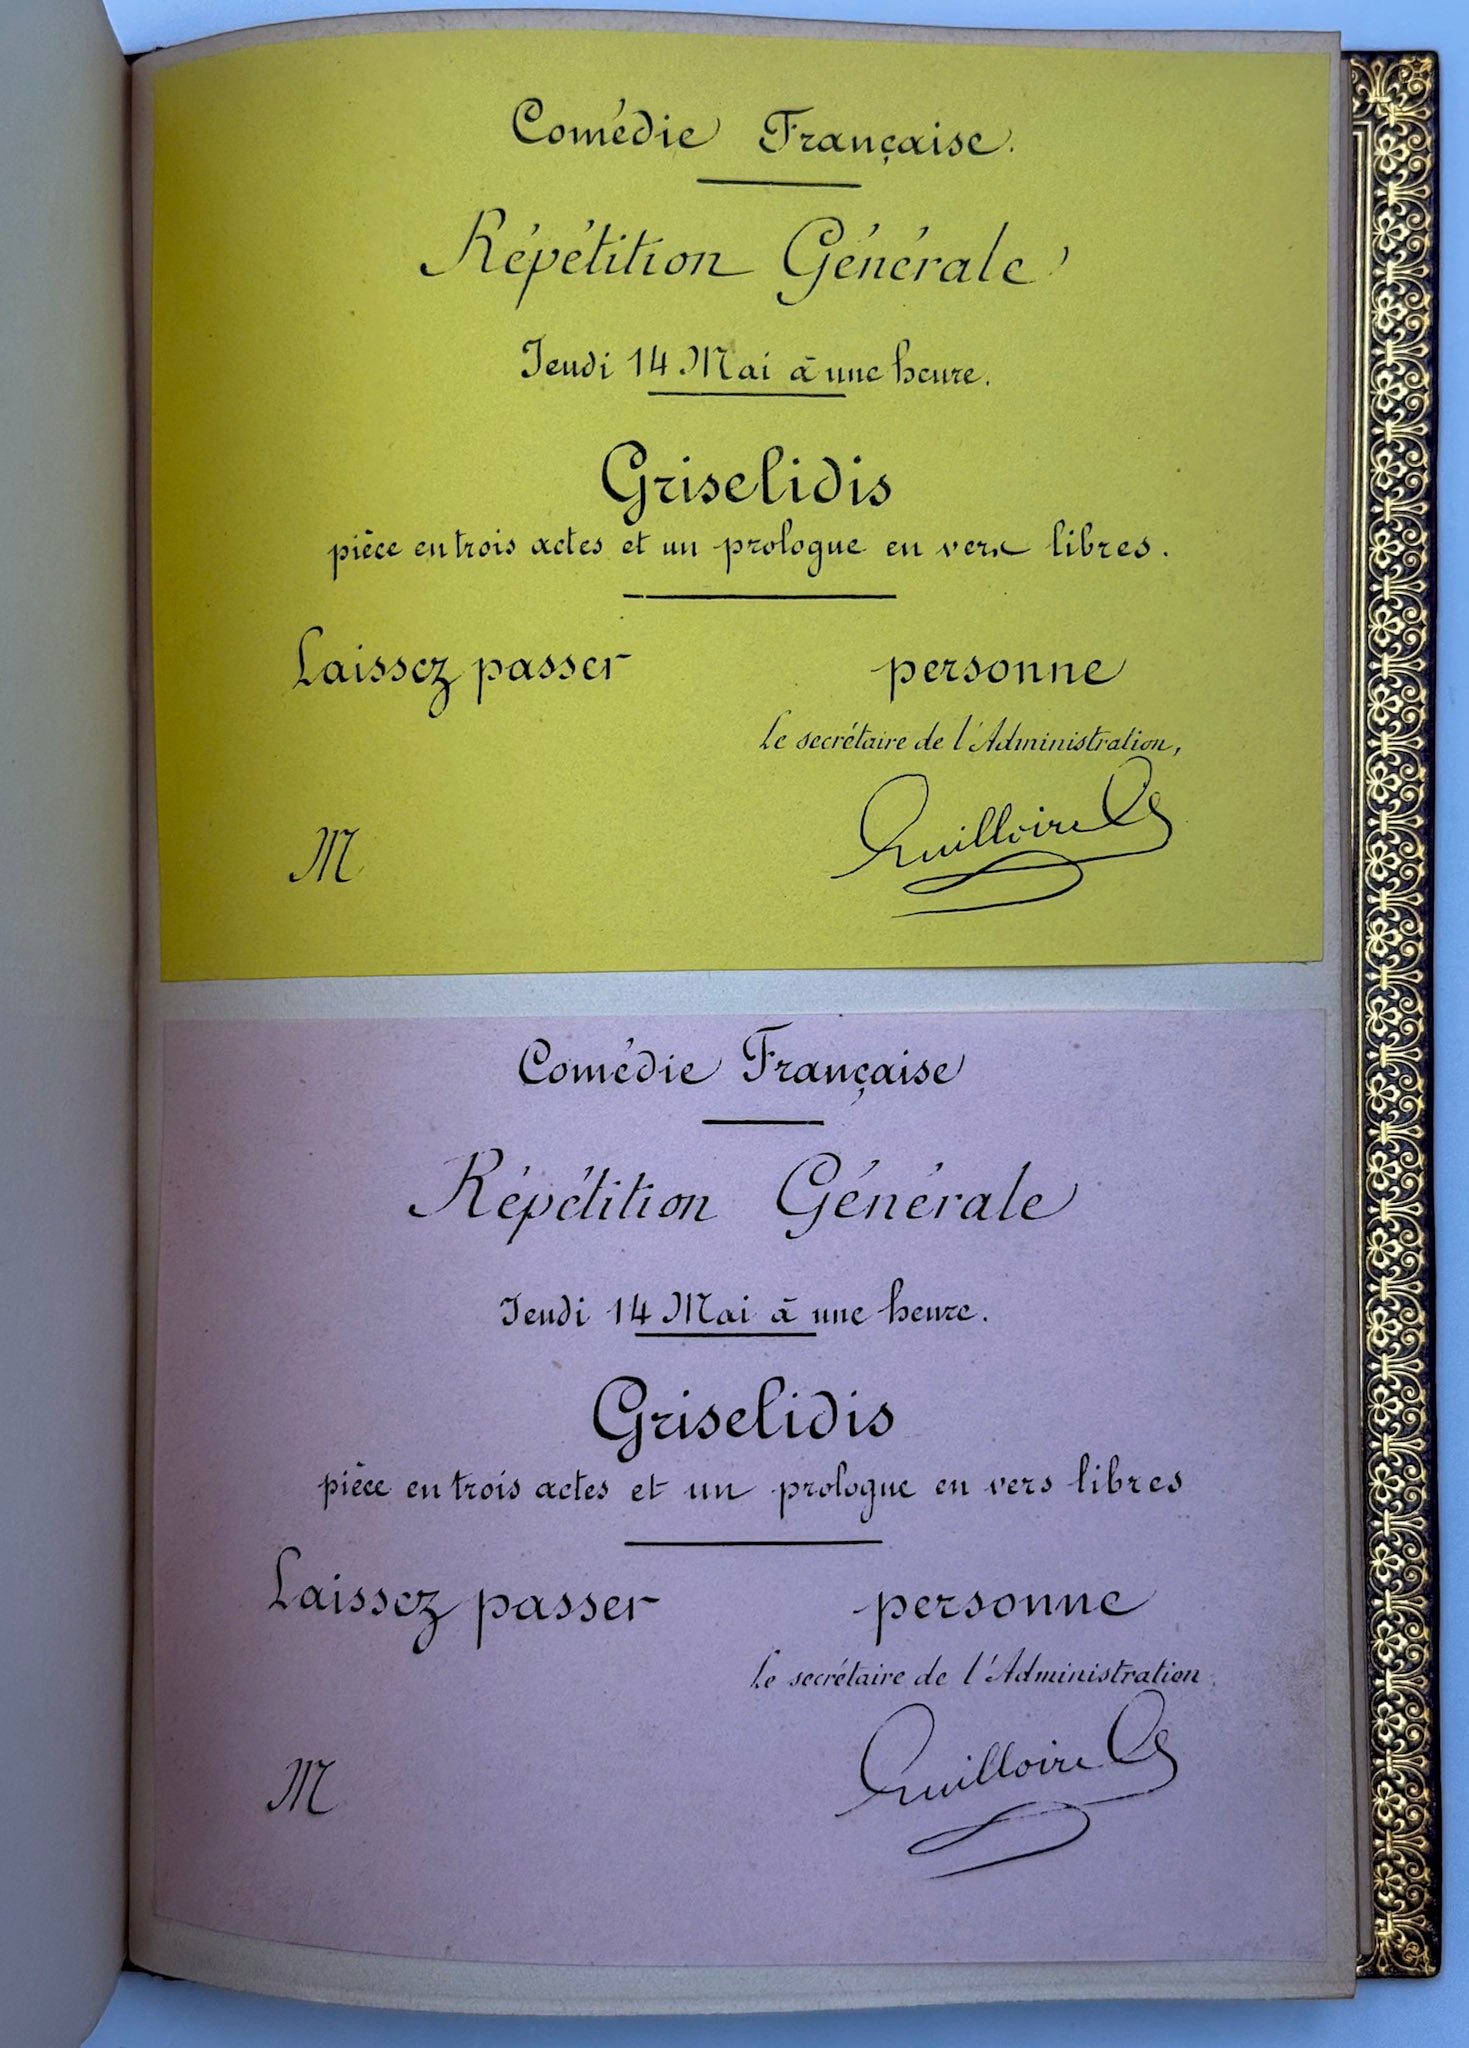 Comédie Française.
Répétition Générale
Jeudi 14 Mai à une heure.
Griselidis
pièce en trois actes et un prologue en vers libres.
Laissez passer personne
Le secrétaire de l'Administration,
M Guilloire
Comédie Française
Répétition Générale
Jeudi 14 Mai à une heure.
Griselidis
pièce en trois actes et un prologue en vers libres
Laissez passer personne
Le secrétaire de l'Administration
M Guilloire